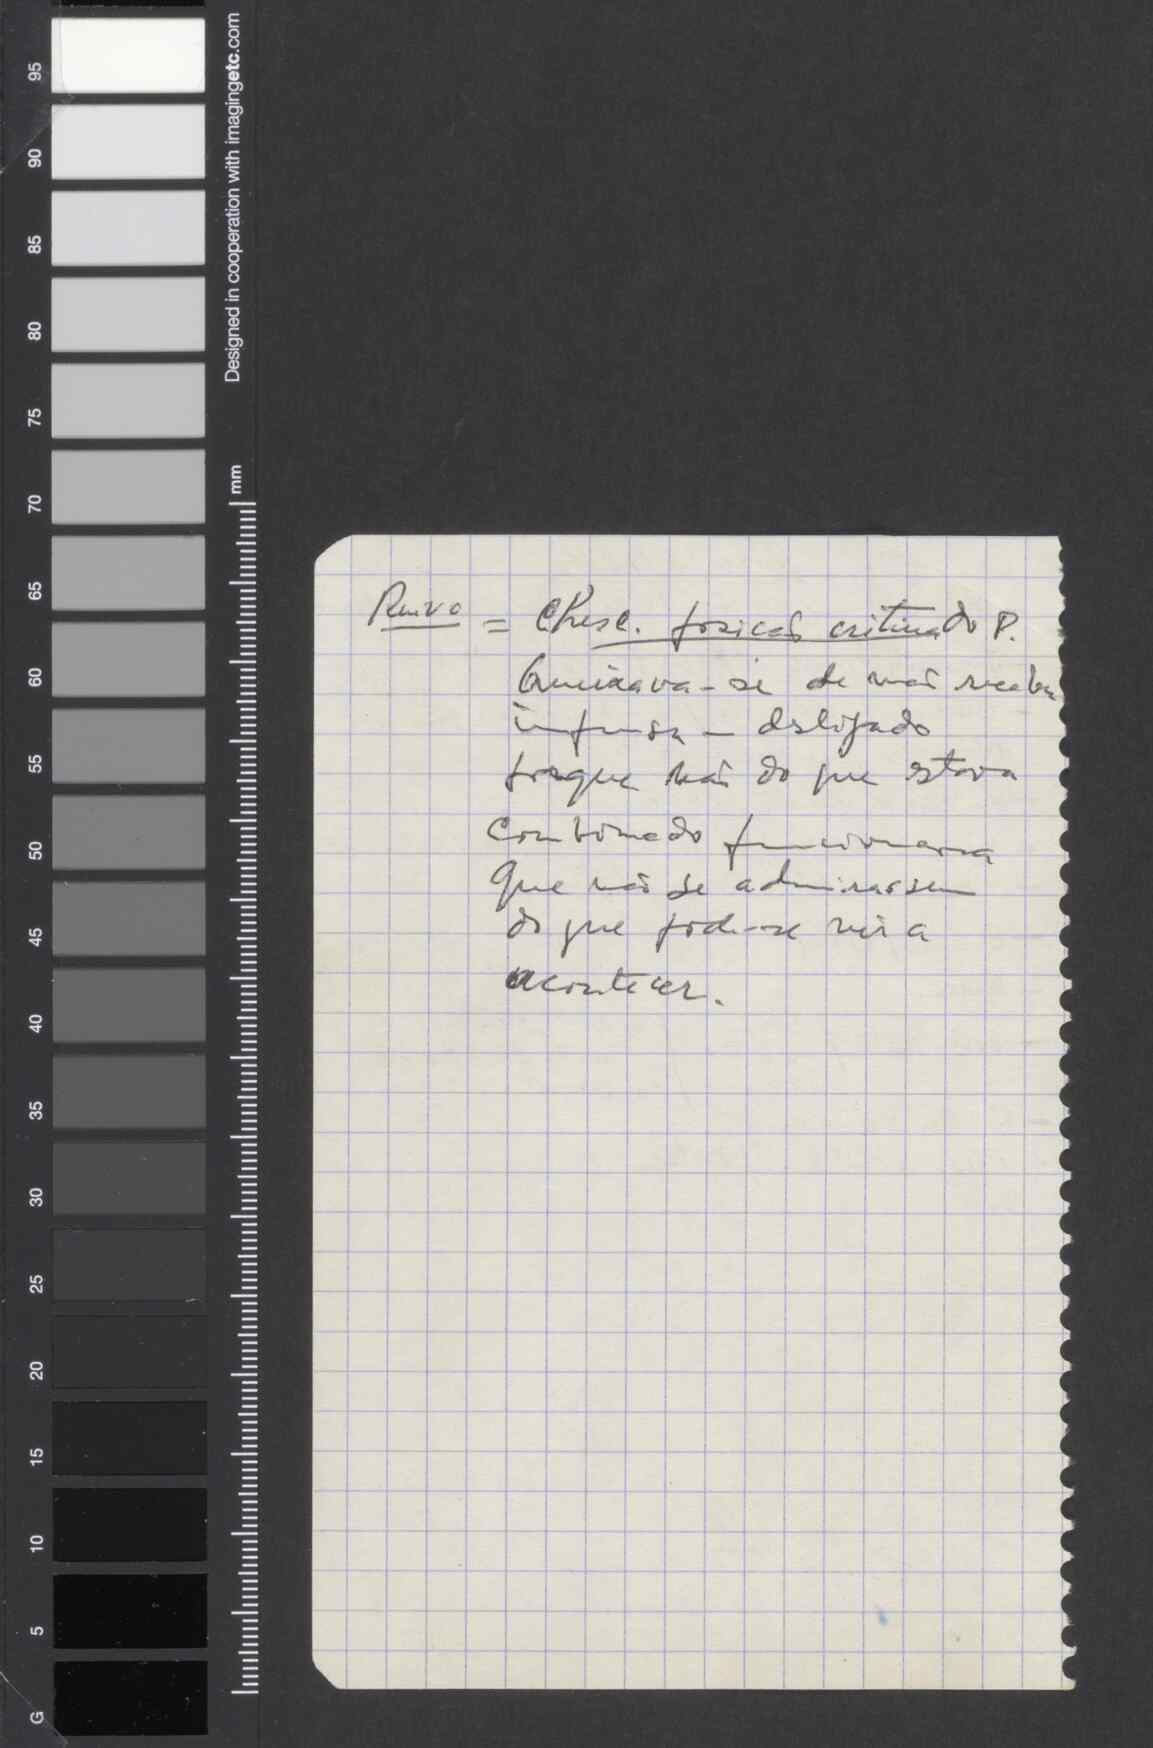 95
90
85
80
75
70
65
60
55
50
45
40
35
30
25
20
15
10
5
G
Designed in cooperation with imagingetc.com
mm
Ruivo = posicão critica do P.
Queixava-se de não receber
desligado
porque não do que estava
combinado funcionaria
Que não se admirassem
do que pode-se vir a
acontecer.